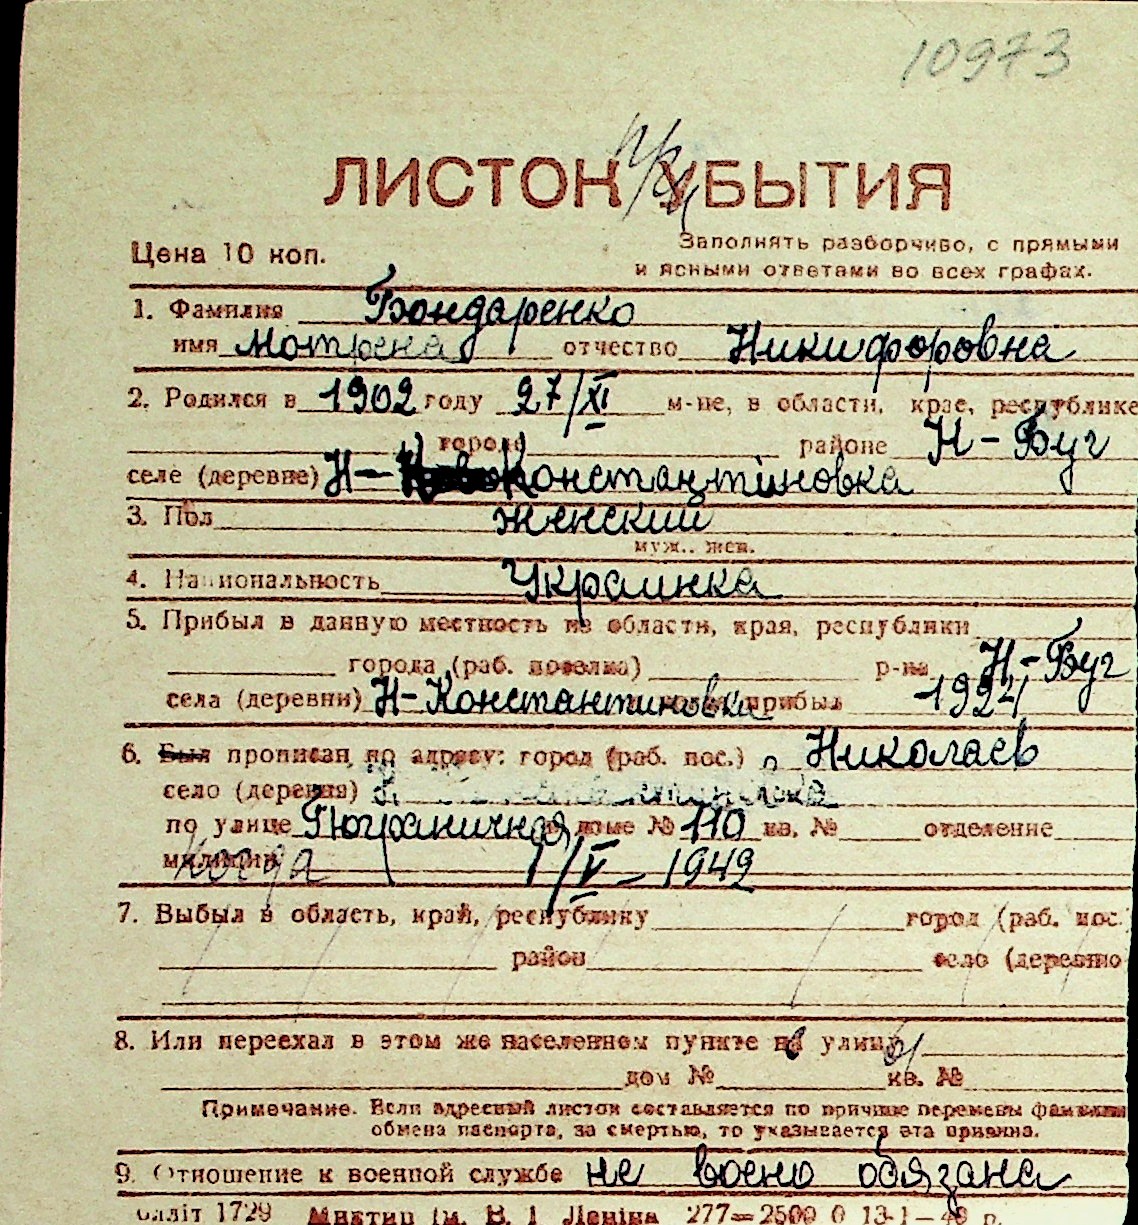 10973
ЛИСТОК УБЫТИЯ
Цена 10 коп.
Заполнять разборчиво, с прямыми
и ясными ответами во всех графах.
1. Фамилия Бондаренко
имя Мотрена отчество Никифоровна
2. Родился в 1902 году 27/XI м-це, в области, крае, республике
городе районе Н-Буг
селе (деревне) Н-Константиновка
3. Пол женский
муж., жен.
4. Национальность Украинка
5. Прибыл в данную местность из области, края, республики
города (раб. поселка) р-на Н-Буг
села (деревни) Н-Константиновка прибыл 1924
6. Был прописан по адресу: город (раб. пос.) Николаев
село (деревня)
по улице Пограничная доме № 110 кв. № отделение
милиции когда 1/V-1949
7. Выбыл в область, край, республику город (раб. пос.
район село (деревню
8. Или переехал в этом же населенном пункте на улицу
дом № кв. №
Примечание. Если адресный листок составляется по причине перемены фамилии
обмена паспорта, за смертью, то указывается эта причина.
9. Отношение к военной службе не воено обязана
олліт 1729 Миктип ім. В. І Леніна 277—2500 0 13-1—49 р.